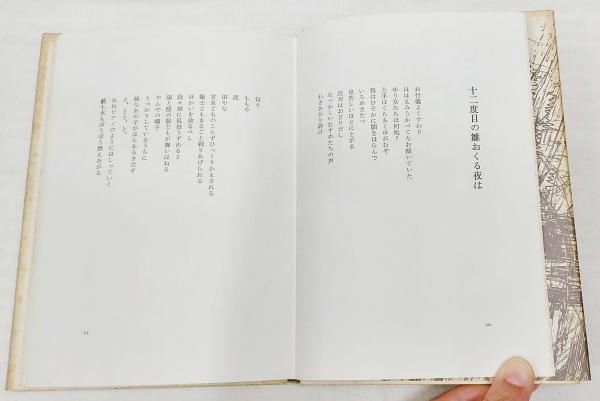 十二度目の雛おくる夜は
お行儀よくすわり
ほほえみうかべてなお傾いていた
ゆう女たちは何処?
土手はくらあくゆがむぞ
祭はひそかに闇をはらんで
いろめきたつ
見苦しいほどにとがる
出刃はおどりだし
なつかしいむすめたちの声
わきあがり跡け
10
匂う
ももや
泥
田やな
官女どものこらずひっくりかえされる
衛士どもまるごと剥りあげられる
ほかいを放るべし
段々畑に乳母うずめると
陽と陰の形どもが舞いはねる
やんやの囃子
うっかりしているうちに
緑なあの子がはらあるきだす
と、とっ、と、
あれピアノのようにはしっていく
血も水もぼうぼう燃えあがる
11